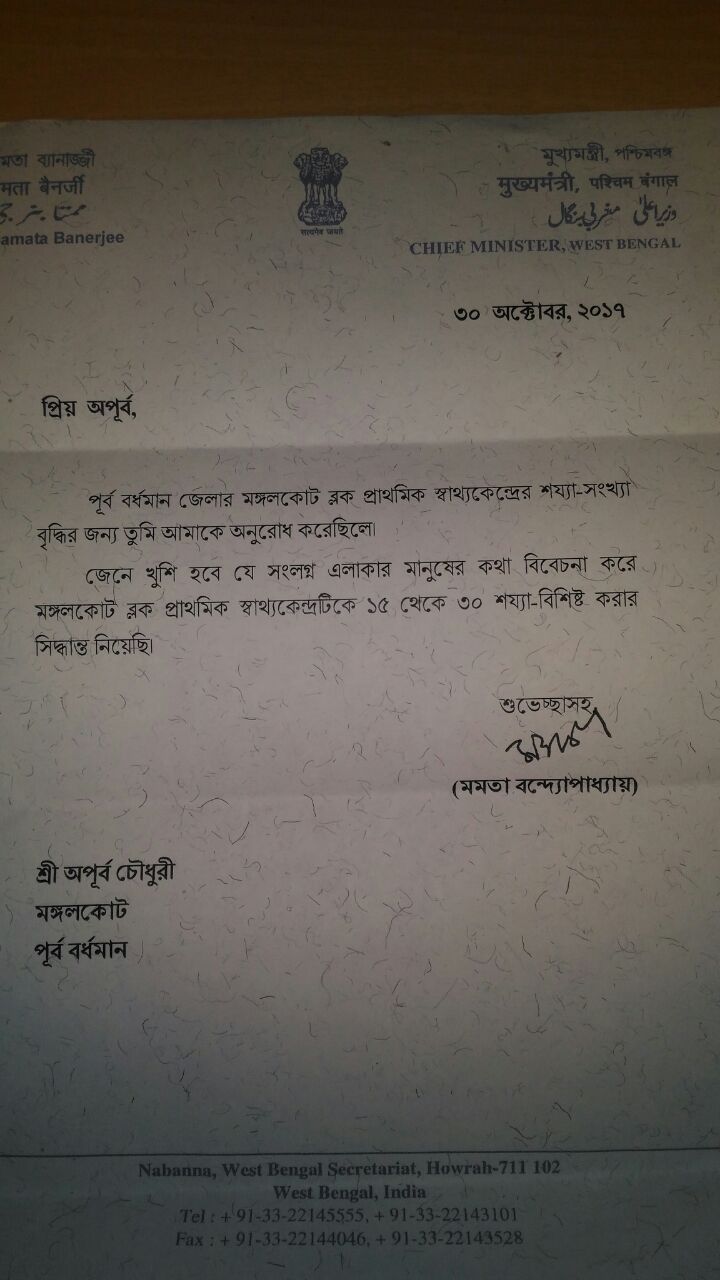 মতা ব্যানার্জ্জী
मता बैनर्जी
ممتا بنرجی
amata Banerjee
सत्यमेव जयते
মুখ্যমন্ত্রী, পশ্চিমবঙ্গ
मुख्यमंत्री, पश्चिम बंगाल
وزیراعلیٰ مغربی بنگال
CHIEF MINISTER, WEST BENGAL
৩০ অক্টোবর, ২০১৭
প্রিয় অপূর্ব,
পূর্ব বর্ধমান জেলার মঙ্গলকোট ব্লক প্রাথমিক স্বাথ্যকেন্দ্রের শয্যা-সংখ্যা
বৃদ্ধির জন্য তুমি আমাকে অনুরোধ করেছিলে।
জেনে খুশি হবে যে সংলগ্ন এলাকার মানুষের কথা বিবেচনা করে
মঙ্গলকোট ব্লক প্রাথমিক স্বাথ্যকেন্দ্রটিকে ১৫ থেকে ৩০ শয্যা-বিশিষ্ট করার
সিদ্ধান্ত নিয়েছি।
শুভেচ্ছাসহ
(মমতা বন্দ্যোপাধ্যায়)
শ্রী অপূর্ব চৌধুরী
মঙ্গলকোট
পূর্ব বর্ধমান
Nabanna, West Bengal Secretariat, Howrah-711 102
West Bengal, India
Tel : + 91-33-22145555, + 91-33-22143101
Fax : + 91-33-22144046, + 91-33-22143528